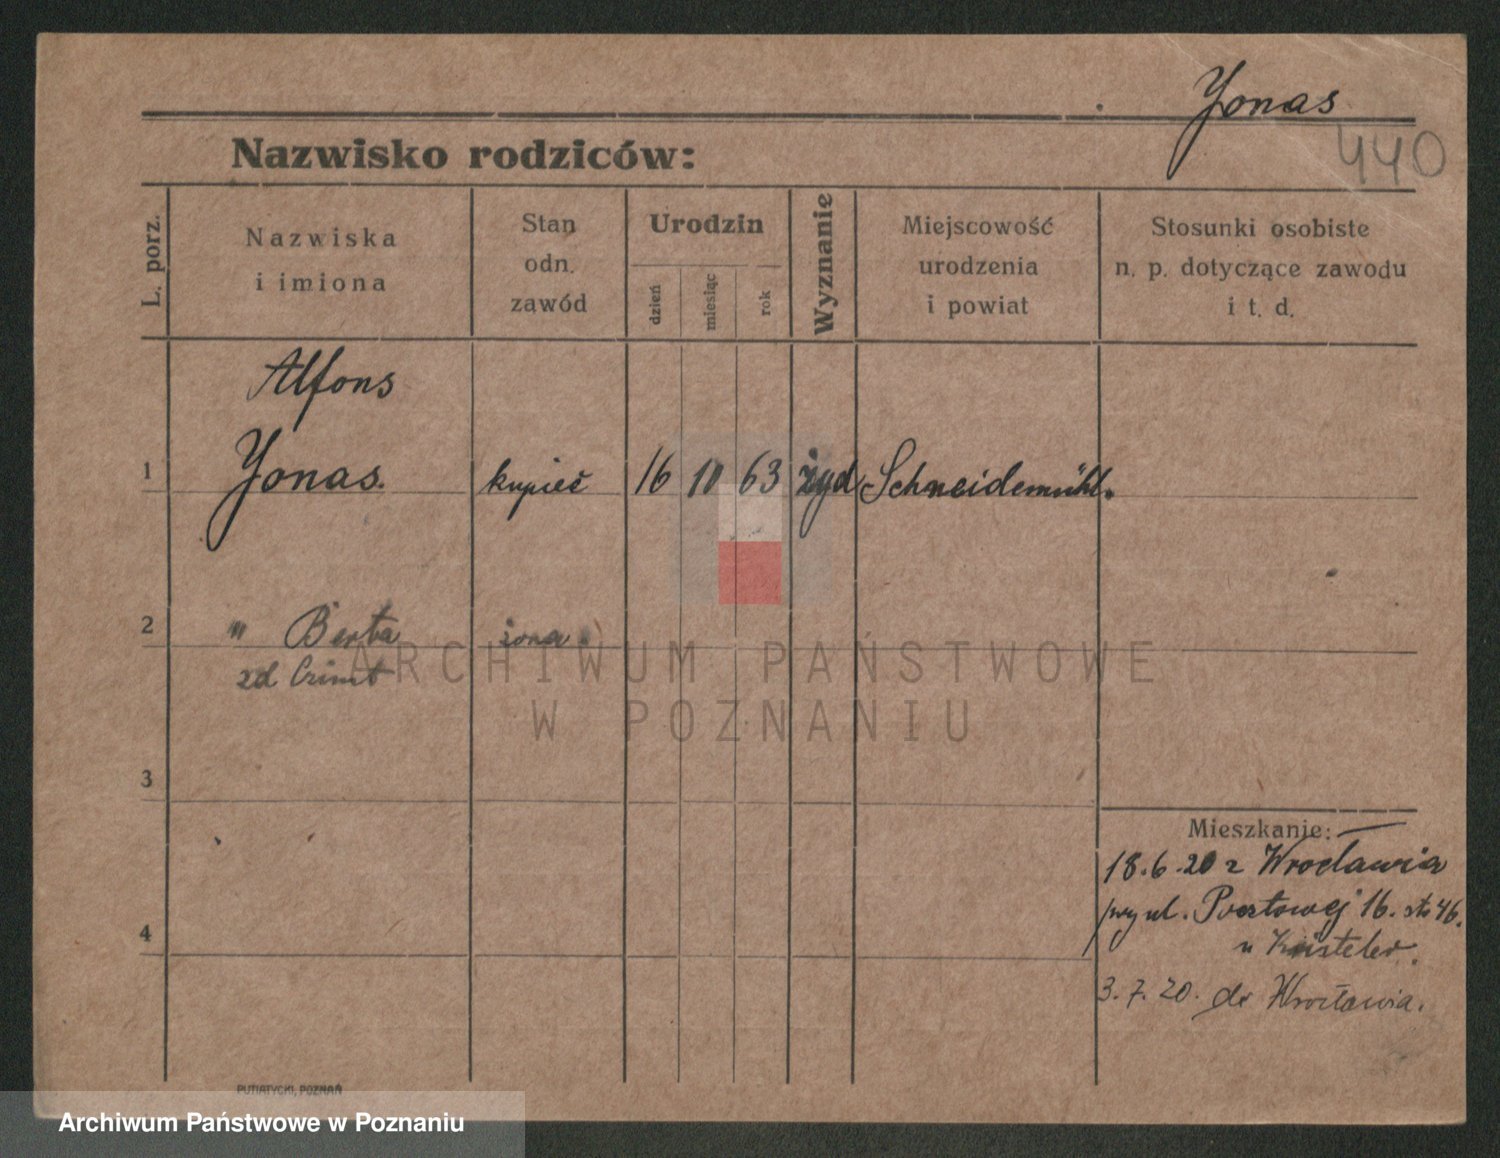 Yonas
440
Nazwisko rodziców:
L. porz.
Nazwiska
i imiona
Stan
odn.
zawód
Urodzin
dzień
miesiąc
rok
Wyznanie
Miejscowość
urodzenia
i powiat
Stosunki osobiste
n. p. dotyczące zawodu
i t. d.
Alfons
1 Yonas. kupiec 16 10 63 żyd Schneidemühl.
2 " Berta żona
ARCHIWUM PAŃSTWOWE
W POZNANIU
3
4
Mieszkanie:
18.6.20 z Wrocławia
przy ul. 16.
3.7.20. do Wrocławia.
PUTIATYCKI, POZNAŃ
Archiwum Państwowe w Poznaniu